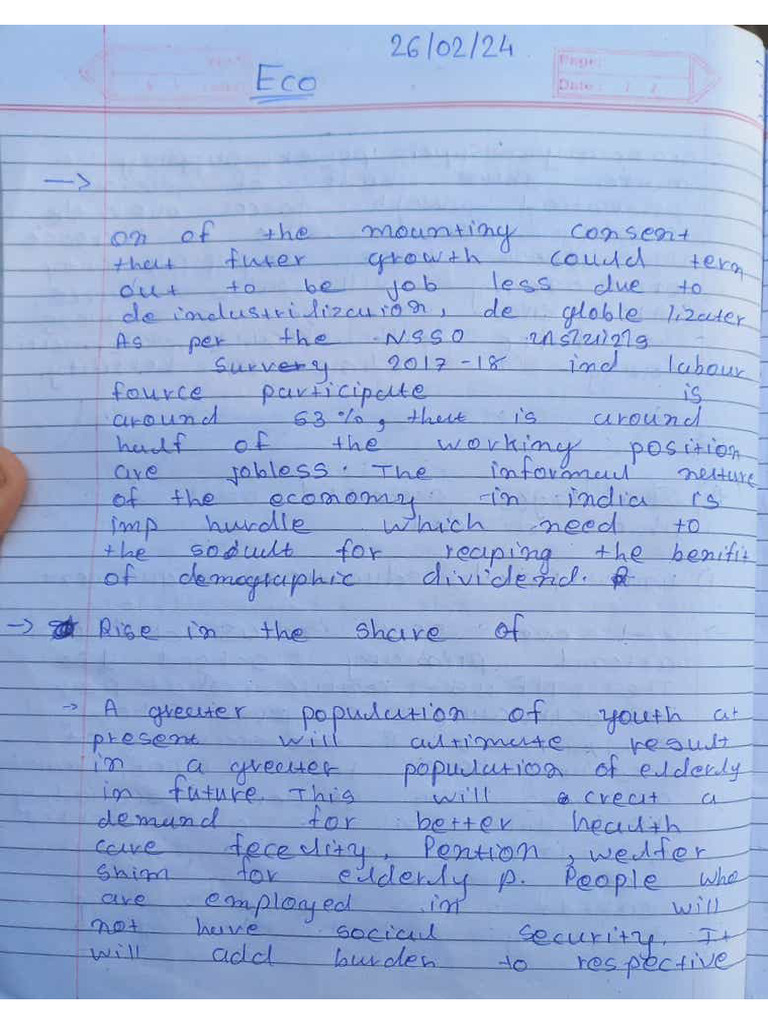 26/02/24
Page:
Date: / /
Eco
→
on of the mounting consent
that futer growth could tern
out to be job less due to
de industrilization, de globle lizater
As per the NSSO
Survery 2017-18 ind labour
fource participate is
around 53%, that is around
half of the working position
are jobless. The informal neture
of the economy in india is
imp hurdle which need to
the sodult for reaping the benifit
of demographic dividend.
→ Rise in the share of
→ A greater population of youth at
present will altimate result
in a greater population of elderly
in future. This will creat a
demand for better health
care fecelity, Pention, welfer
shim for elderly p. People who
are employed in will
not have social security. It
will add burden to respective